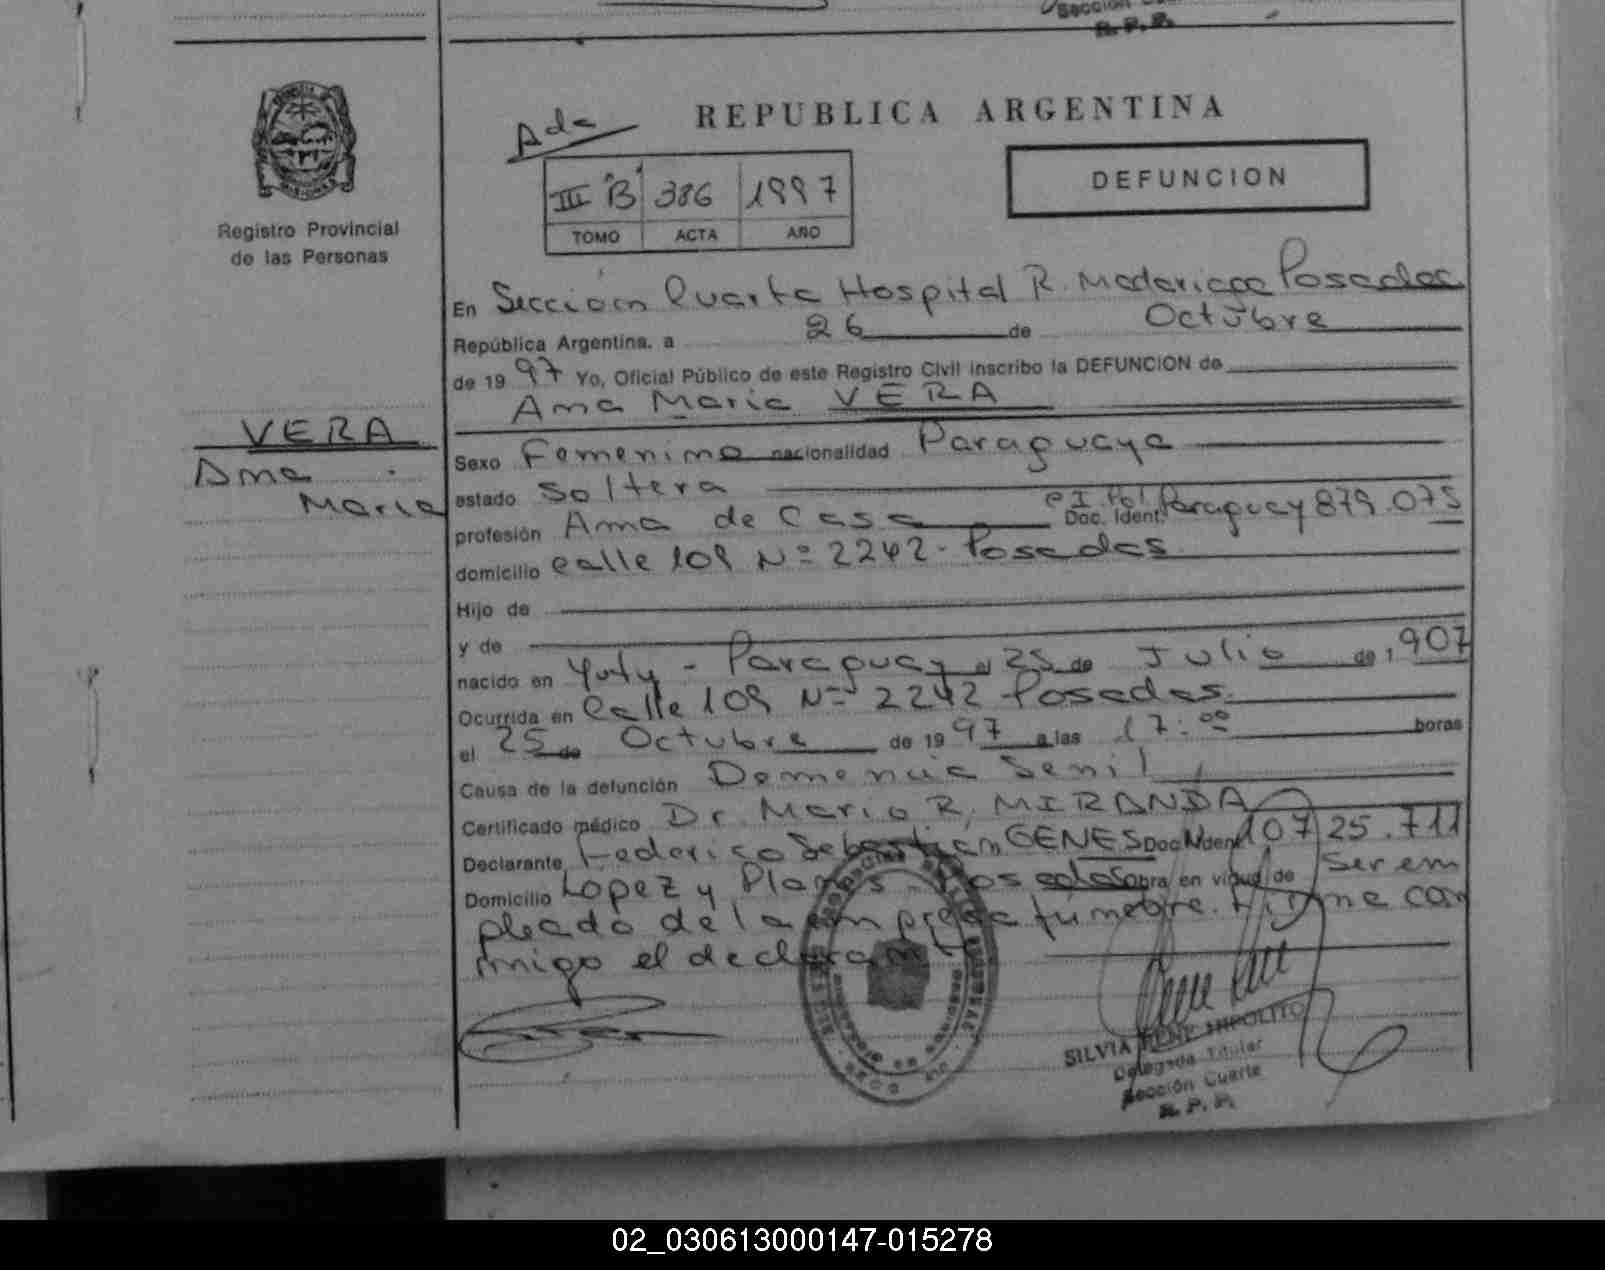 Sección
R. P. P.
REPUBLICA ARGENTINA
Ada
DEFUNCION
III "B" 386 1997
TOMO ACTA AÑO
Registro Provincial
de las Personas
En Sección Cuarta Hospital R. Madariaga Posadas
República Argentina, a 26 de Octubre
de 1997 Yo, Oficial Público de este Registro Civil inscribo la DEFUNCION de
Ana Maria VERA
VERA
Ana
Maria
Sexo Femenino nacionalidad Paraguaya
estado Soltera
profesión Ama de Casa Doc. Ident. C.I. Pol. Paraguay 879.075
domicilio Calle 109 Nº 2242 - Posadas
Hijo de
y de
nacido en Yuty - Paraguay el 25 de Julio de 1907
Ocurrida en Calle 109 Nº 2242 Posadas
el 25 de Octubre de 1997 a las 17:00 horas
Causa de la defunción Demencia Senil
Certificado médico Dr. Mario R. MIRANDA
Declarante Federico Sebastián GENES Doc. Ident. 25.711
Domicilio Lopez y Planes - Posadas Obra en virtud de ser em
pleado de la empresa fúnebre. Firma con
migo el declarante
SILVIA IRENE HIPOLITO
Delegada Titular
Sección Cuarta
R. P. P.
02_030613000147-015278